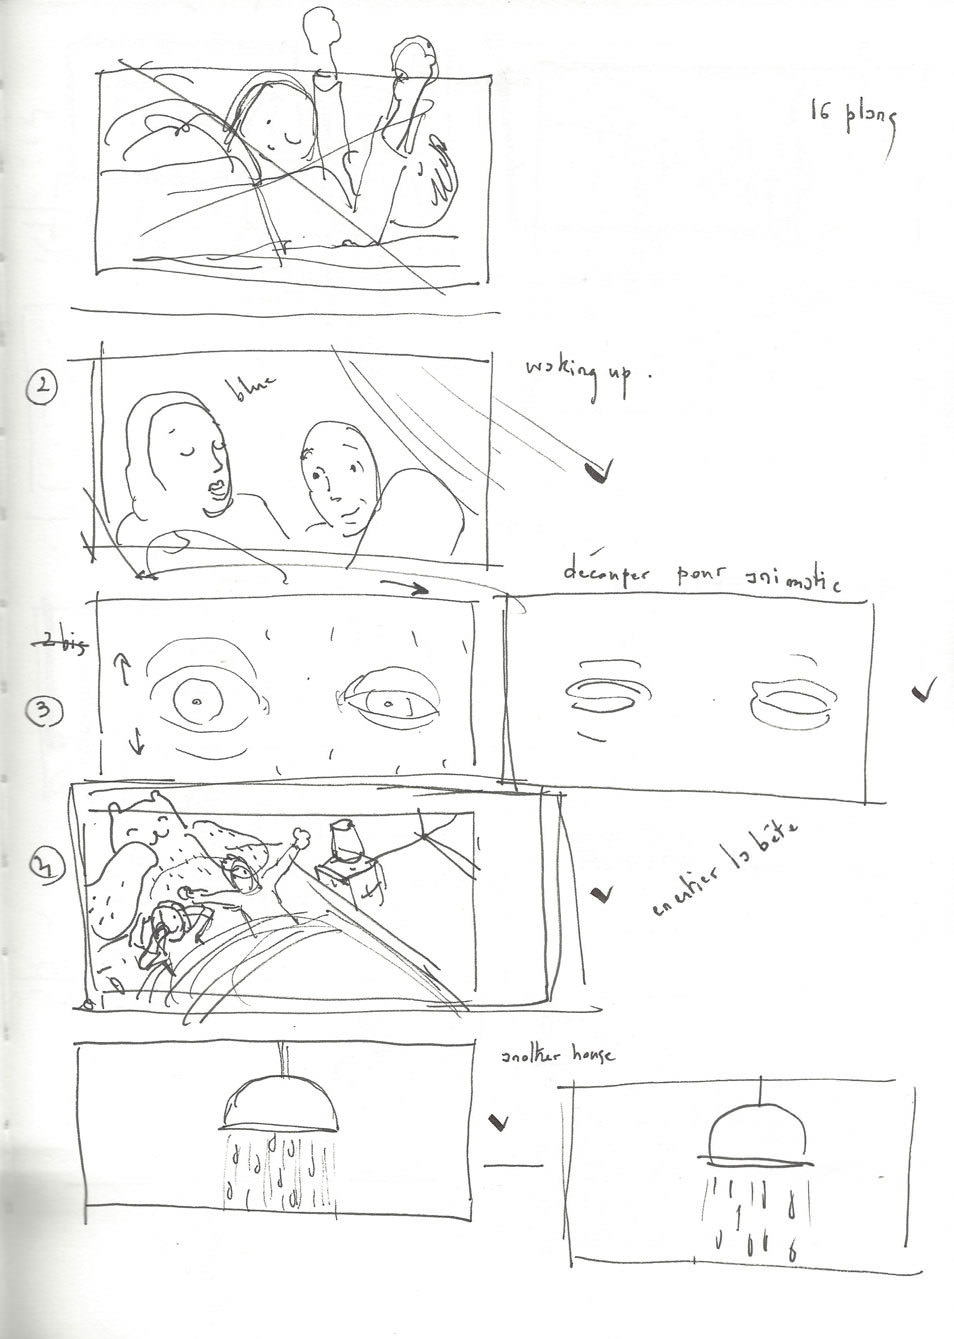 16 plans
2
waking up .
blue
découper pour animatic
2 bis
3
4
en entier la bête
another house